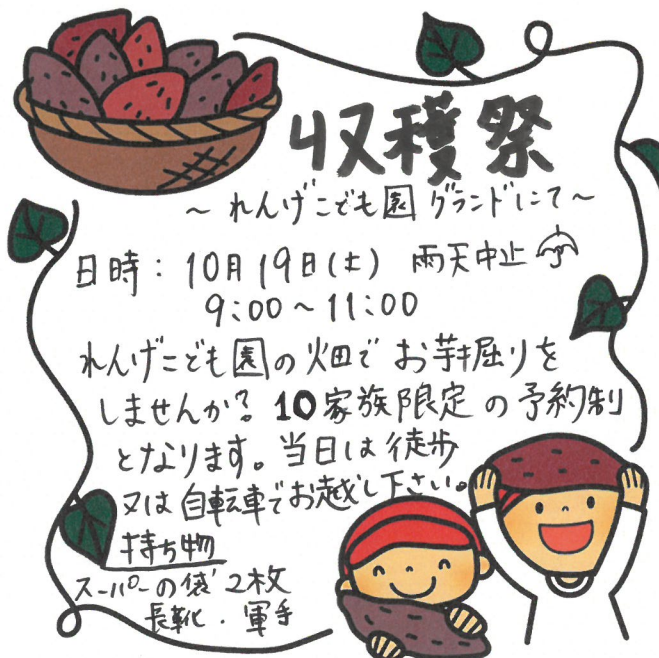 収穫祭
～れんげこども園グランドにて～
日時：10月19日(土) 雨天中止
9:00～11:00
れんげこども園の畑でお芋掘りを
しませんか？10家族限定の予約制
となります。当日は徒歩
又は自転車でお越し下さい。
持ち物
スーパーの袋2枚
長靴・軍手